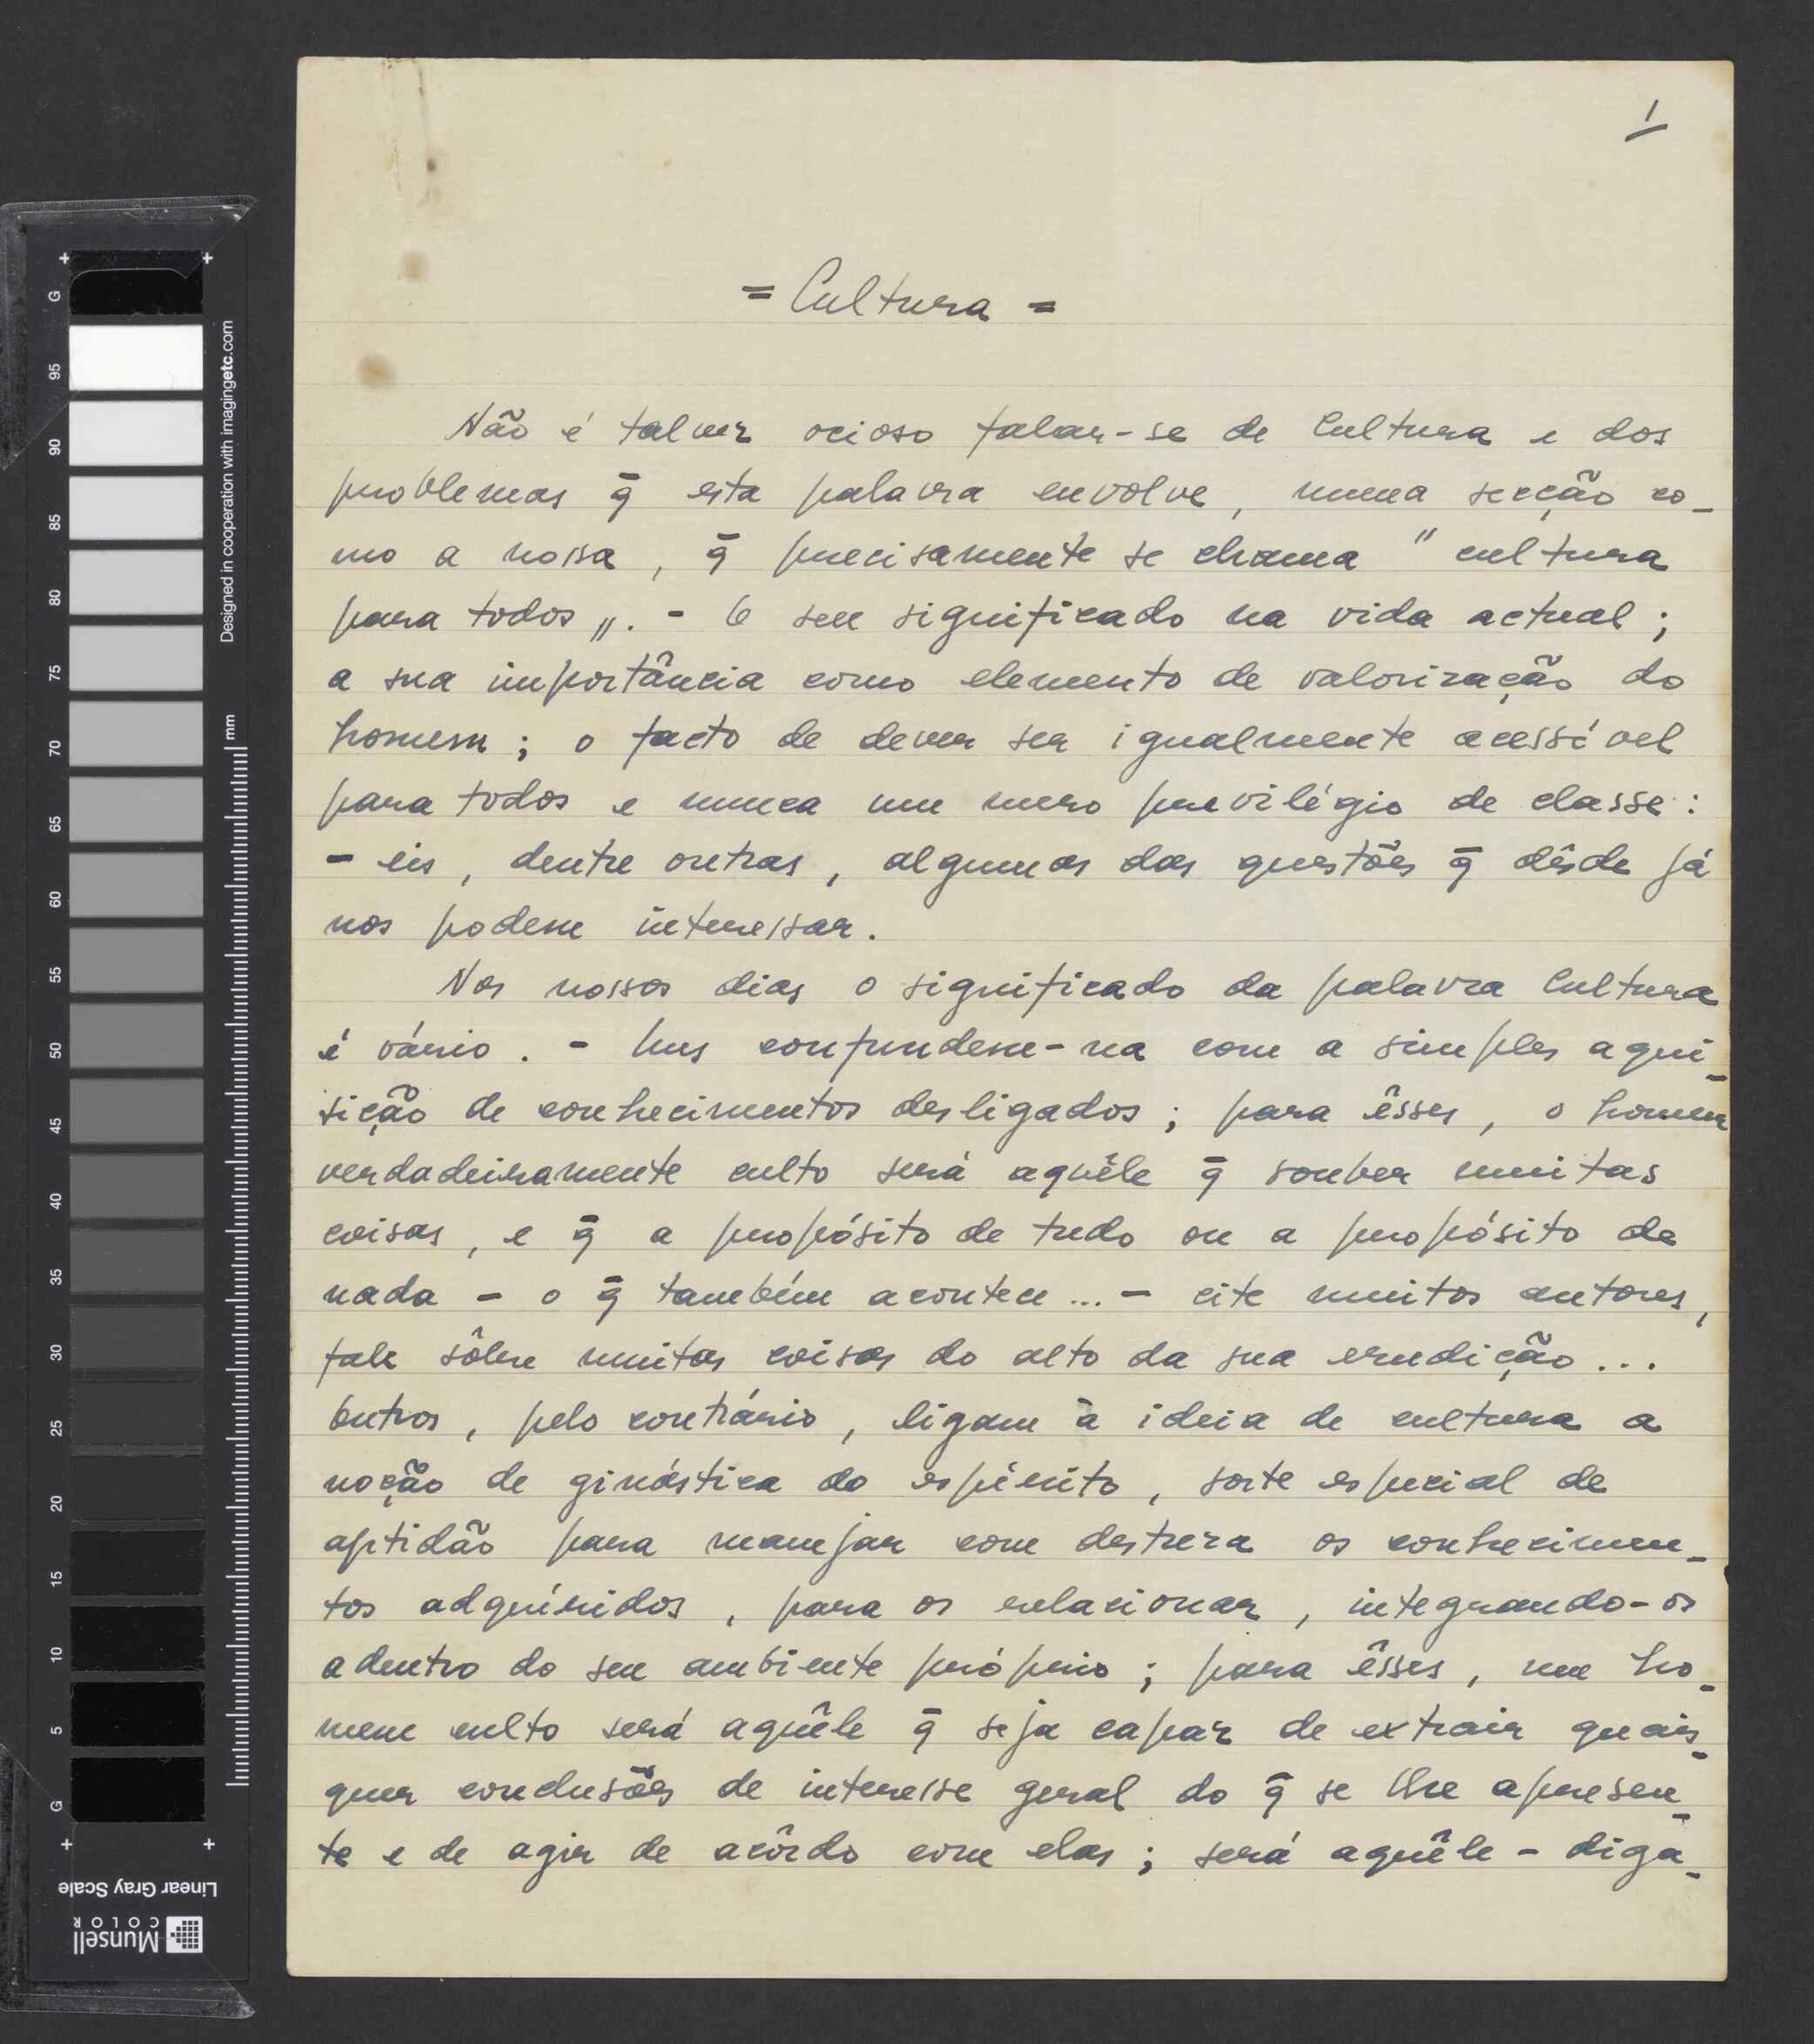 1
= Cultura =
Não é talvez ocioso falar-se de Cultura e dos
problemas q̄ esta palavra envolve, numa secção co-
mo a nossa, q̄ precisamente se chama "cultura
para todos". - O seu significado na vida actual;
a sua importância como elemento de valorização do
homem; o facto de dever ser igualmente acessível
para todos e nunca um mero previlégio de classe:
- eis, dentre outras, algumas das questões q̄ dêsde já
nos podem interessar.
Nos nossos dias o significado da palavra Cultura
é vário. - Uns confundem-na com a simples aqui-
sição de conhecimentos desligados; para êsses, o homem
verdadeiramente culto será aquêle q̄ souber muitas
coisas, e q̄ a propósito de tudo ou a propósito de
nada - o q̄ também acontece... - cite muitos autores,
fale sôbre muitas coisas do alto da sua erudição...
Outros, pelo contrário, ligam à ideia de cultura a
noção de ginástica do espírito, sorte especial de
aptidão para manejar com destreza os conhecimen-
tos adquíridos, para os relacionar, integrando-os
adentro do seu ambiente próprio; para êsses, um ho-
mem culto será aquêle q̄ seja capaz de extrair quais-
quer conclusões de interesse geral do q̄ se lhe apresen-
te e de agir de acôrdo com elas; será aquêle - diga-
G
95
90
85
80
75
70
65
60
55
50
45
40
35
30
25
20
15
10
5
G
Designed in cooperation with imagingetc.com
mm
Linear Gray Scale
Munsell
COLOR